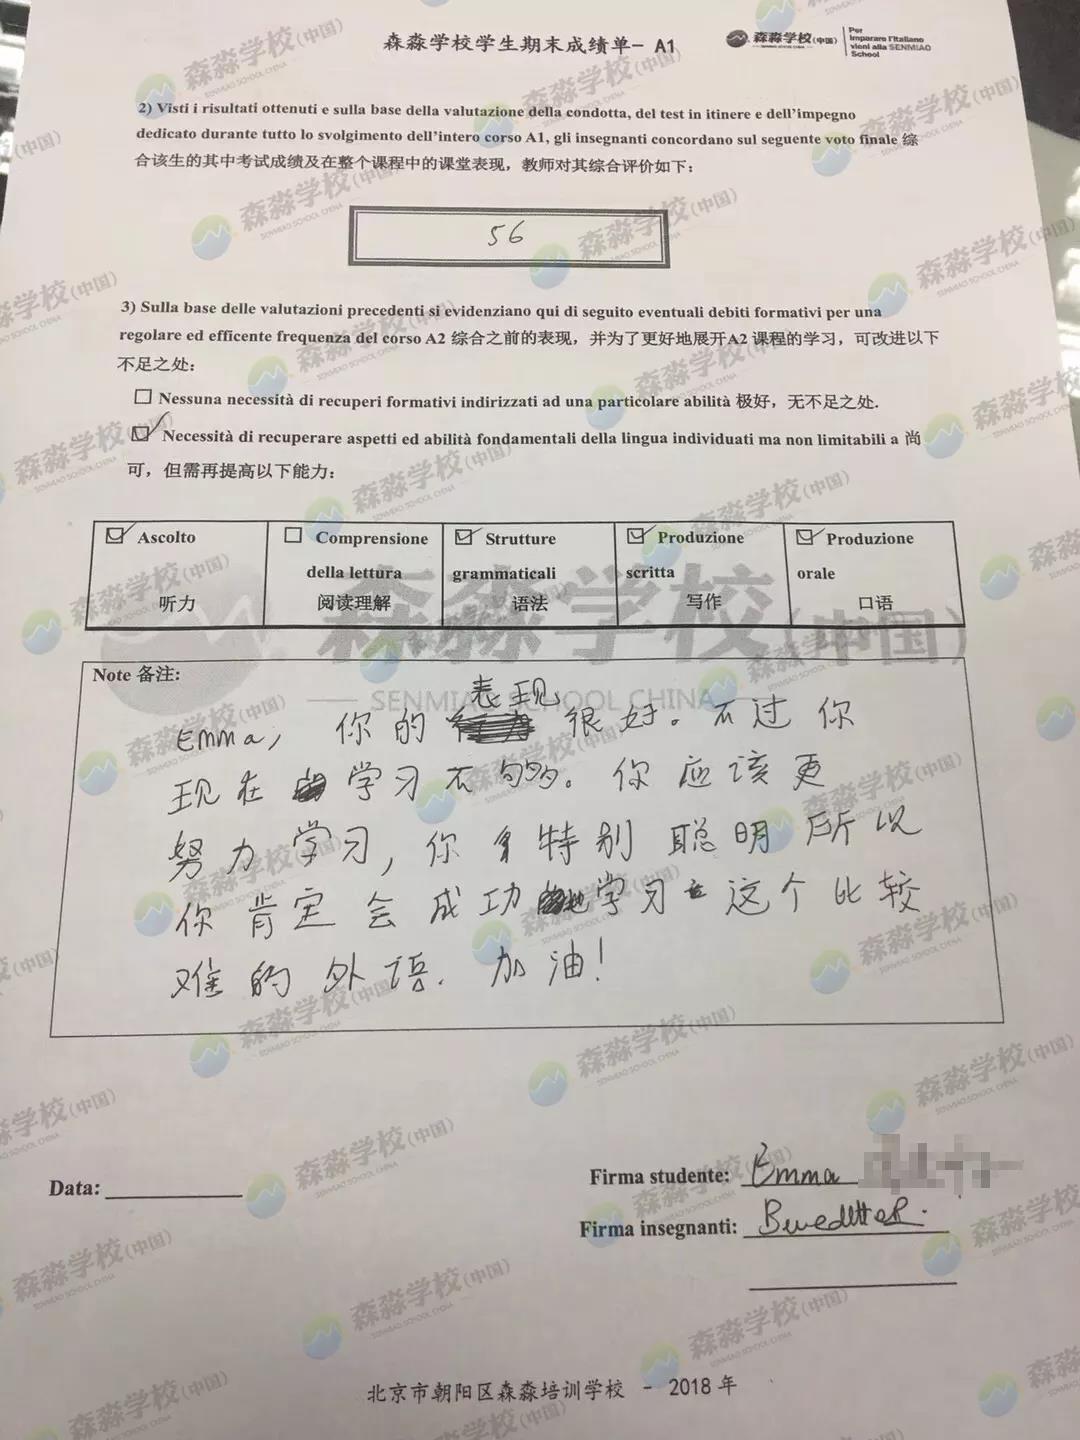 森淼学校学生期末成绩单- A1
森淼学校(中国)
SENMIAO SCHOOL CHINA
Per
Imparare l'Italiano
vieni alla SENMIAO
School
2) Visti i risultati ottenuti e sulla base della valutazione della condotta, del test in itinere e dell'impegno
dedicato durante tutto lo svolgimento dell'intero corso A1, gli insegnanti concordano sul seguente voto finale 综
合该生的其中考试成绩及在整个课程中的课堂表现，教师对其综合评价如下：
56
3) Sulla base delle valutazioni precedenti si evidenziano qui di seguito eventuali debiti formativi per una
regolare ed efficente frequenza del corso A2 综合之前的表现，并为了更好地展开A2 课程的学习，可改进以下
不足之处：
☐ Nessuna necessità di recuperi formativi indirizzati ad una particolare abilità 极好，无不足之处.
☑ Necessità di recuperare aspetti ed abilità fondamentali della lingua individuati ma non limitabili a 尚
可，但需再提高以下能力：
☑ Ascolto
听力
☐ Comprensione
della lettura
阅读理解
☑ Strutture
grammaticali
语法
☑ Produzione
scritta
写作
☑ Produzione
orale
口语
森淼学校(中国)
SENMIAO SCHOOL CHINA
Note 备注:
Emma, 你的表现很好。不过你
现在学习不够。你应该更
努力学习, 你特别聪明所以
你肯定会成功学习这个比较
难的外语. 加油!
Data:
Firma studente: Emma
Firma insegnanti: Benedetta R.
北京市朝阳区森淼培训学校 - 2018 年